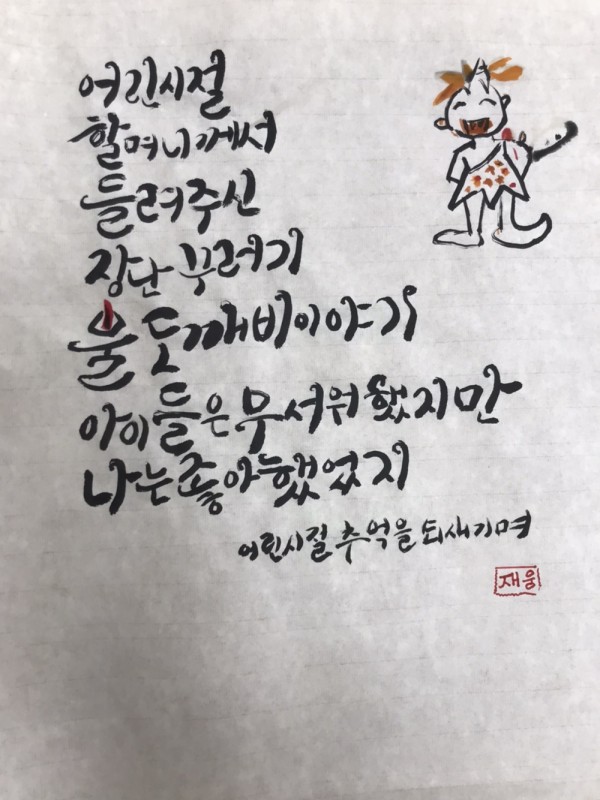 어린시절
할머니께서
들려주신
장난꾸러기
불도깨비이야기
아이들은 무서워했지만
나는좋아했었지
어린시절 추억을 되새기며
재웅